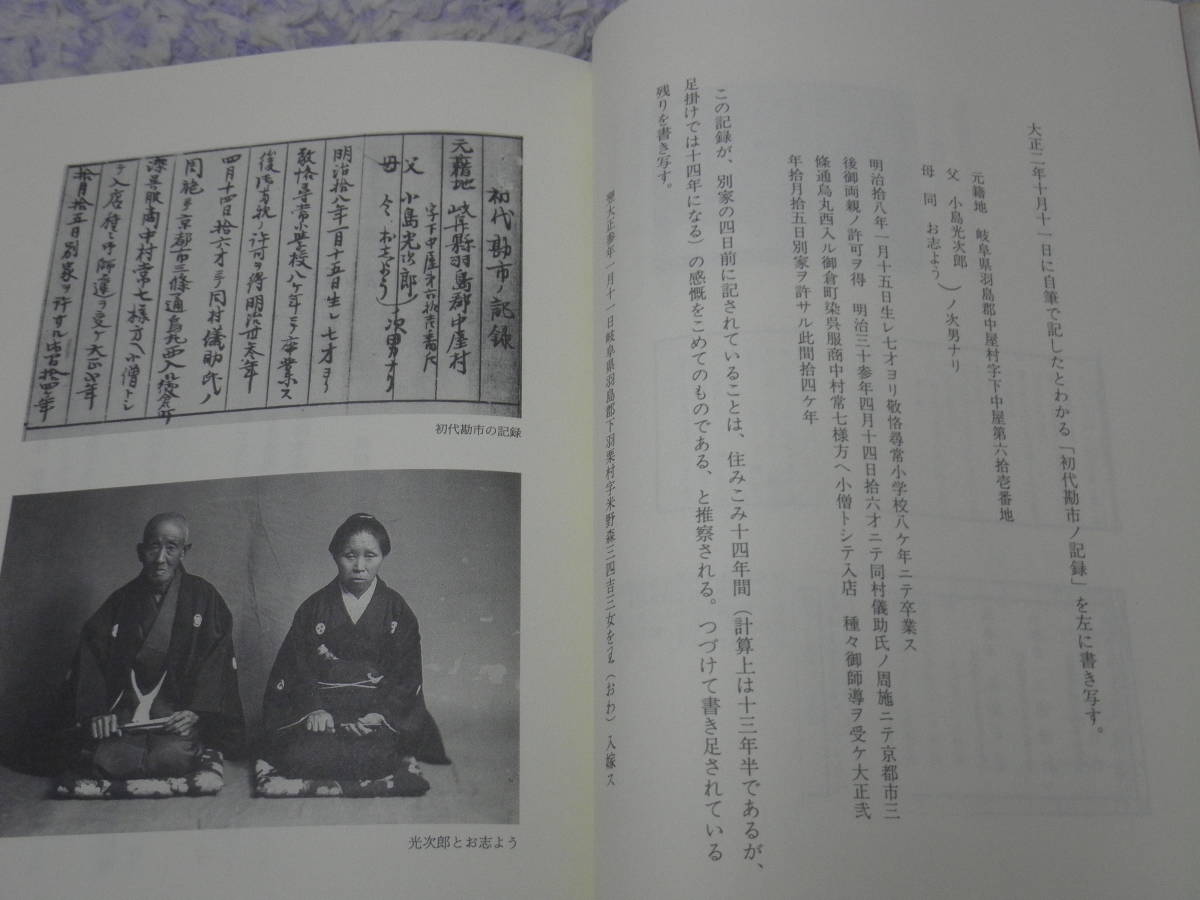 大正二年十月十一日に自筆で記したとわかる「初代勘市ノ記録」を左に書き写す。
元籍地　岐阜県羽島郡中屋村字下中屋第六拾壱番地
父　小島光次郎
母　同　お志よう
）ノ次男ナリ
明治拾八年一月十五日生レ七才ヨリ敬恪尋常小学校八ケ年ニテ卒業ス
後御両親ノ許可ヲ得　明治三十参年四月十四日拾六才ニテ同村儀助氏ノ周施ニテ京都市三
條通烏丸西入ル御倉町染呉服商中村常七様方ヘ小僧トシテ入店　種々御師導ヲ受ケ大正弐
年拾月拾五日別家ヲ許サル此間拾四ケ年
この記録が、別家の四日前に記されていることは、住みこみ十四年間（計算上は十三年半であるが、
足掛けでは十四年になる）の感慨をこめてのものである、と推察される。つづけて書き足されている
残りを書き写す。
大正参年一月十一日岐阜県羽島郡下羽栗村字米野森三四吉三女を王（おわ）入嫁ス
初代勘市ノ記録
元籍地　岐阜縣羽島郡中屋村
字下中屋才六拾壱番地
父　小島光次郎
母　仝　お志よう
）次男ナリ
明治拾八年一月十五日生レ七才ヨリ
敬恪尋常小学校八ケ年ニテ卒業ス
後両親ノ許可ヲ得明治卅参年
四月十四日拾六才ニテ同村儀助氏ノ
周施ニテ京都市三條通烏丸西入ル御倉町
染呉服商中村常七様方ヘ小僧トシ
テ入店種々御師導ヲ受ケ大正弐年
拾月拾五日別家ヲ許サル此間拾四ケ年
初代勘市の記録
光次郎とお志よう